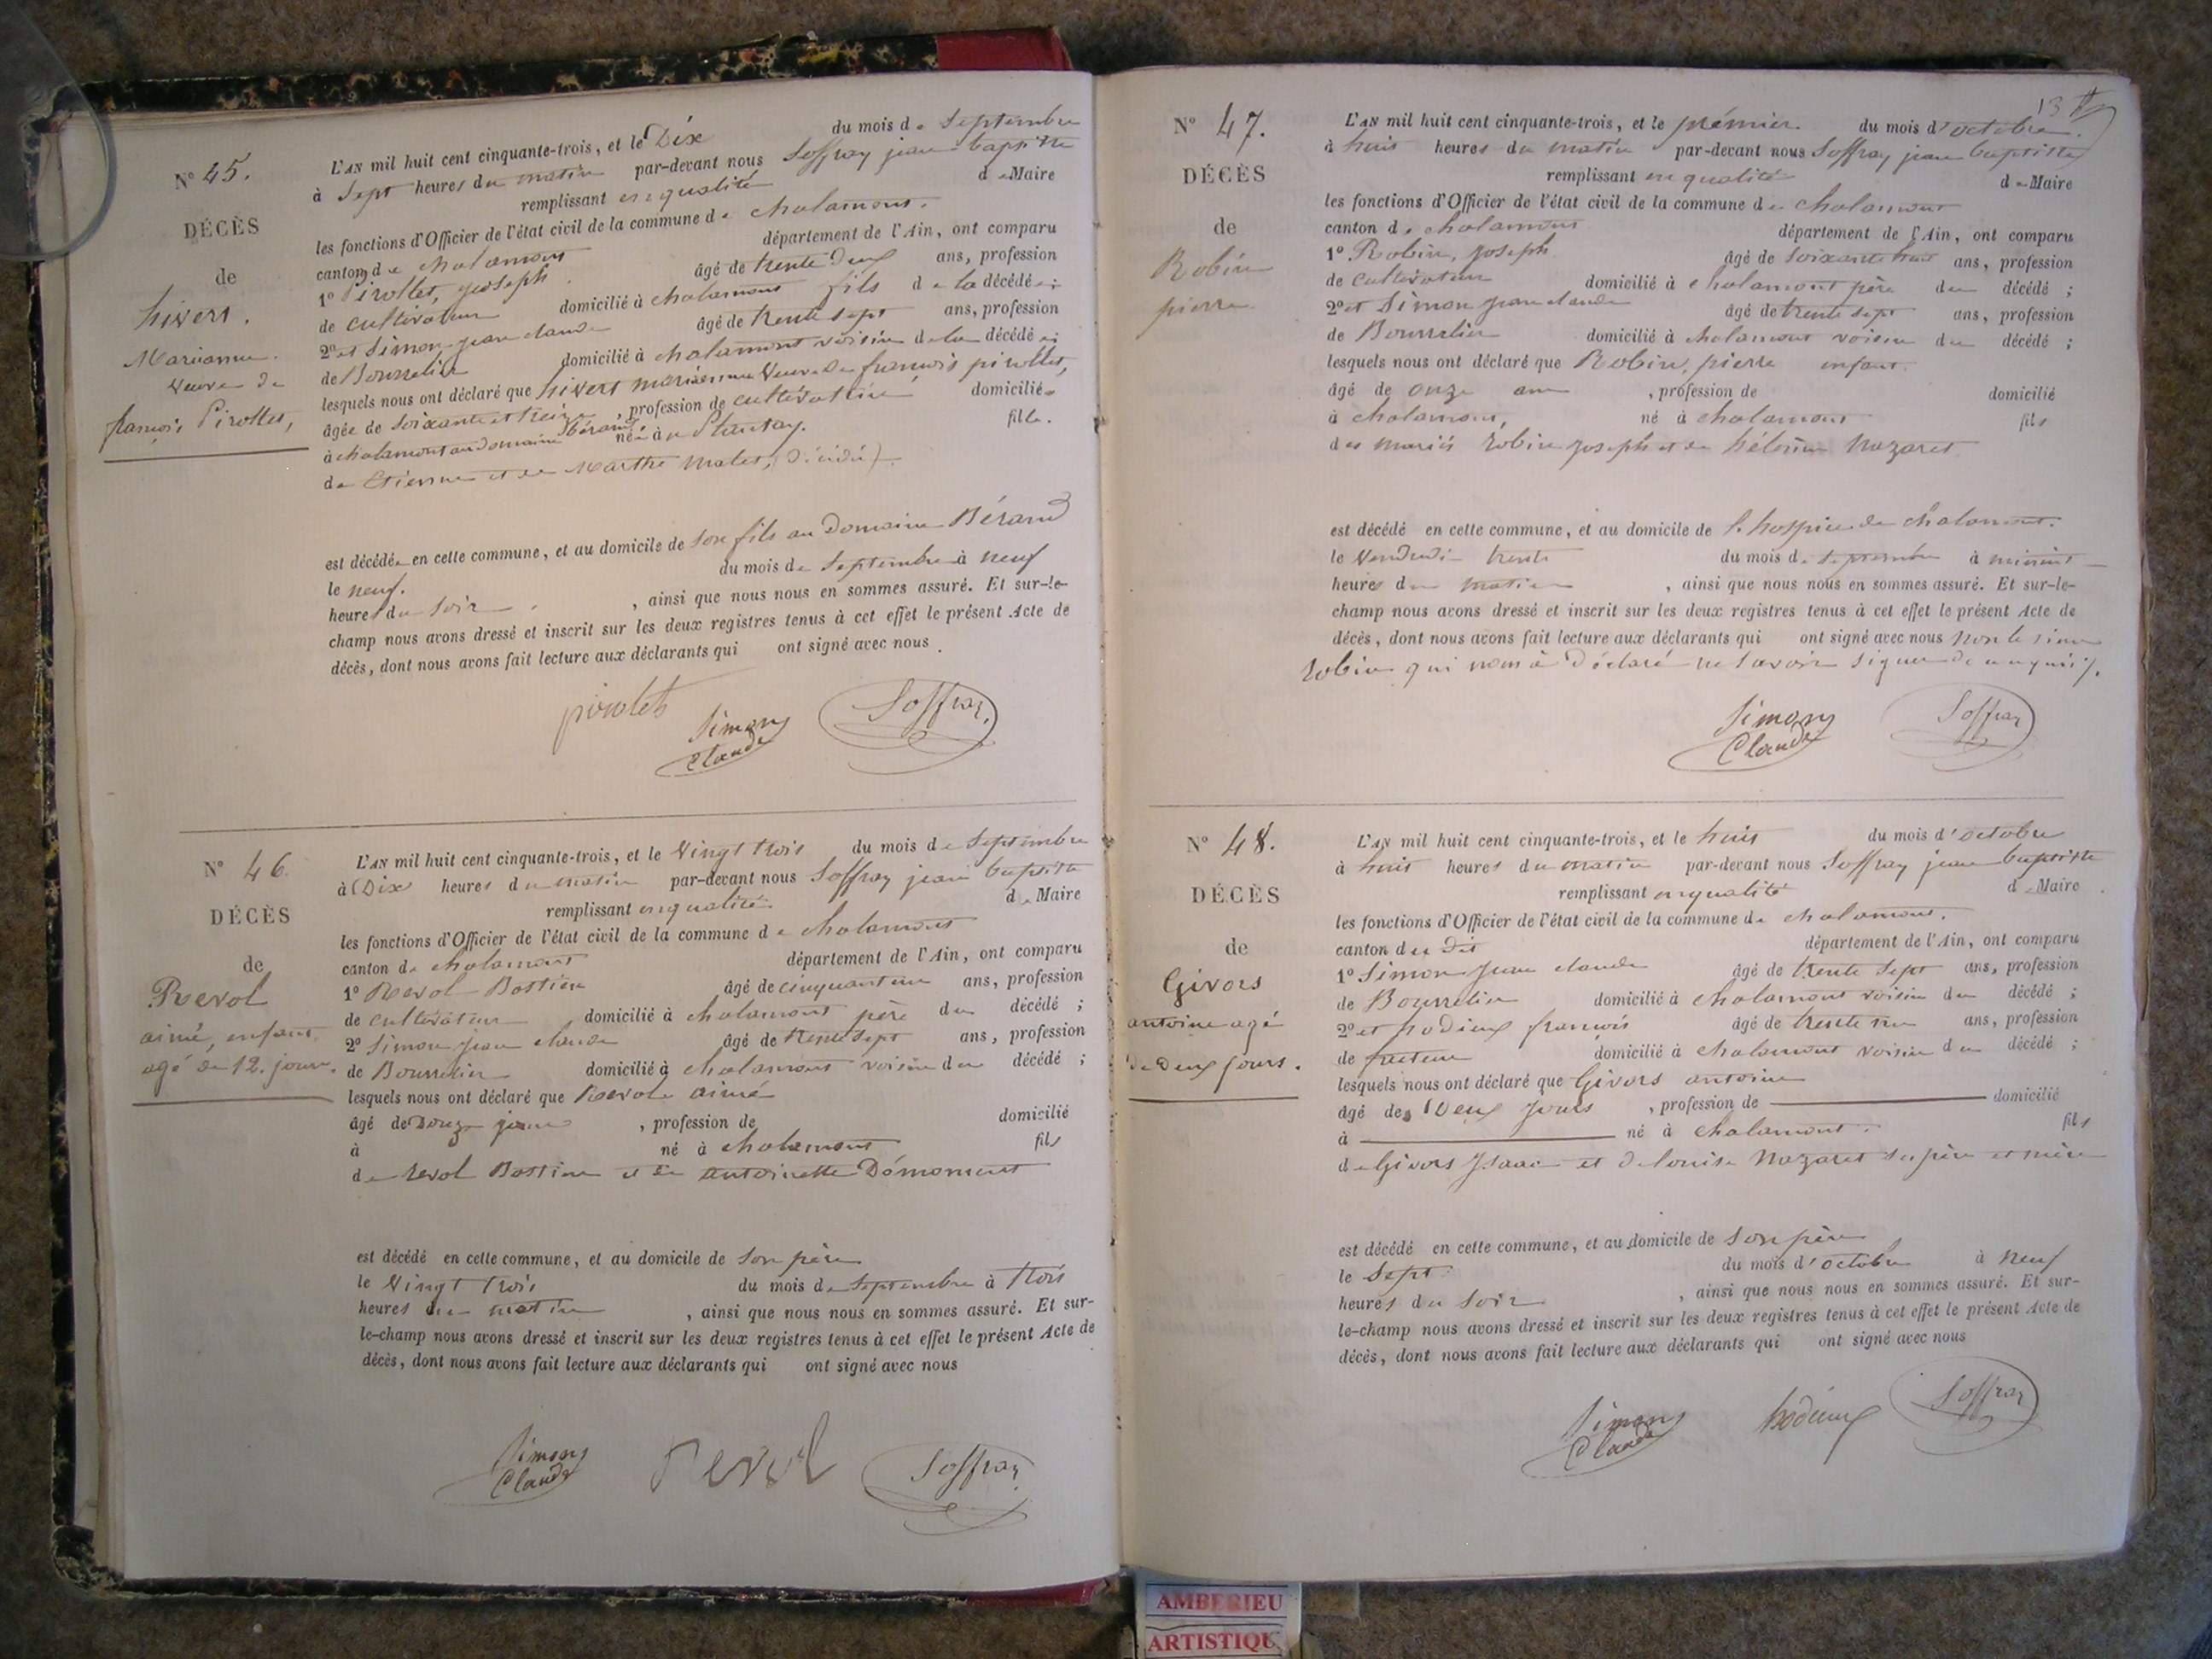 N° 45.
DÉCÈS
de
hivert.
Marianne.
Veuve de
françois Pirollet,
L'AN mil huit cent cinquante-trois, et le Dix du mois de Septembre
à Sept heures du matin par-devant nous Soffray jean baptiste
remplissant en qualité de Maire
les fonctions d'Officier de l'état civil de la commune de chalamont.
canton de chalamont département de l'Ain, ont comparu
1° Pirollet, joseph âgé de trente deux ans, profession
de cultivateur domicilié à chalamont fils de la décédée;
2° et Simon jean claude âgé de trente sept ans, profession
de Bourrelier domicilié à chalamont voisin de la décédée;
lesquels nous ont déclaré que hivert marianne Veuve de françois pirollet,
âgée de soixante et treize, profession de cultivatrice domiciliée
à chalamont au domaine Bérand née à St fille.
de Etienne et de Marthe décédés
est décédée en cette commune, et au domicile de son fils au Domaine Bérand
le neuf. du mois de Septembre à neuf
heures du soir, ainsi que nous nous en sommes assuré. Et sur-le-
champ nous avons dressé et inscrit sur les deux registres tenus à cet effet le présent Acte de
décès, dont nous avons fait lecture aux déclarants qui ont signé avec nous.
pirolet Simon Claude Soffray
N° 46.
DÉCÈS
de
Revol
aimé, enfant
agé de 12. jours.
L'AN mil huit cent cinquante-trois, et le Vingt trois du mois de Septembre
à Dix heures du matin par-devant nous Soffray jean baptiste
remplissant en qualité de Maire
les fonctions d'Officier de l'état civil de la commune de chalamont
canton de chalamont département de l'Ain, ont comparu
1° Revol Bastien âgé de cinquante un ans, profession
de cultivateur domicilié à chalamont père du décédé;
2° Simon jean claude âgé de trente sept ans, profession
de Bourrelier domicilié à chalamont voisin du décédé;
lesquels nous ont déclaré que Revol aimé
âgé de Douze jours, profession de domicilié
à né à chalamont fils
de revol Bastien et de antoinette Démoment
est décédé en cette commune, et au domicile de son père
le Vingt trois du mois de Septembre à trois
heures du matin, ainsi que nous nous en sommes assuré. Et sur-
le-champ nous avons dressé et inscrit sur les deux registres tenus à cet effet le présent Acte de
décès, dont nous avons fait lecture aux déclarants qui ont signé avec nous
Simon Claude revol Soffray
13
N° 47.
DÉCÈS
de
Robin
pierre
L'AN mil huit cent cinquante-trois, et le prémier. du mois d'octobre.
à huit heures du matin par-devant nous Soffray jean baptiste
remplissant en qualité de Maire
les fonctions d'Officier de l'état civil de la commune de chalamont
canton de chalamont département de l'Ain, ont comparu
1° Robin, joseph âgé de soixante huit ans, profession
de cultivateur domicilié à chalamont père du décédé;
2° et Simon jean claude âgé de trente sept ans, profession
de Bourrelier domicilié à chalamont voisin du décédé;
lesquels nous ont déclaré que Robin, pierre enfant
âgé de onze ans, profession de domicilié
à chalamont, né à chalamont fils
des mariés robin joseph et de Nazaret
est décédé en cette commune, et au domicile de l'hospice de chalamont.
le Vendredi trente du mois de septembre à minuit
heures du matin, ainsi que nous nous en sommes assuré. Et sur-le-
champ nous avons dressé et inscrit sur les deux registres tenus à cet effet le présent Acte de
décès, dont nous avons fait lecture aux déclarants qui ont signé avec nous non le sieur
robin qui nous à déclaré ne savoir signer de ce requis.
Simon Claude Soffray
N° 48.
DÉCÈS
de
Givors
antoine agé
de deux jours.
L'AN mil huit cent cinquante-trois, et le huit du mois d'octobre
à huit heures du matin par-devant nous Soffray jean baptiste
remplissant en qualité de Maire
les fonctions d'Officier de l'état civil de la commune de chalamont.
canton du dit département de l'Ain, ont comparu
1° Simon jean claude âgé de trente sept ans, profession
de Bourrelier domicilié à chalamont voisin du décédé;
2° et françois âgé de trente ans, profession
de facteur domicilié à chalamont voisin du décédé;
lesquels nous ont déclaré que Givors antoine
âgé de Deux jours, profession de domicilié
à né à chalamont. fils
de Givors Isaac et de louise Nazaret ses père et mère
est décédé en cette commune, et au domicile de son père
le Sept du mois d'octobre à neuf
heures du soir, ainsi que nous nous en sommes assuré. Et sur-
le-champ nous avons dressé et inscrit sur les deux registres tenus à cet effet le présent Acte de
décès, dont nous avons fait lecture aux déclarants qui ont signé avec nous
Simon Claude Soffray
AMBERIEU
ARTISTIQU